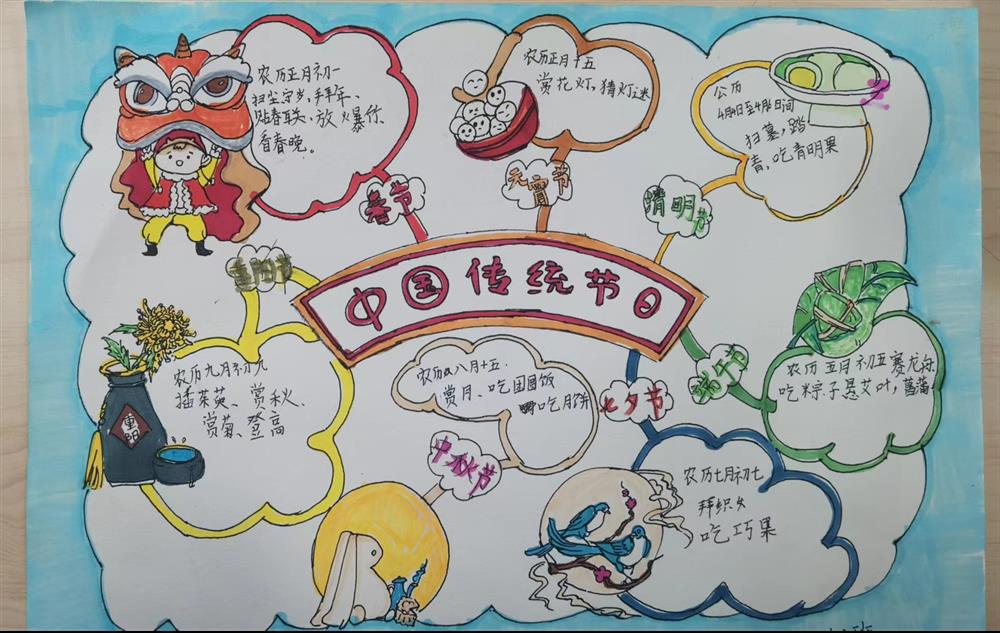 中国传统节日
春节
农历正月初一
扫尘守岁、拜年、
贴春联、放火暴竹
看春晚。
元宵节
农历正月十五
赏花灯,猜灯迷
清明节
公历
4月4日至4月6日间
扫墓,踏
青,吃青明果
端午节
农历五月初五赛龙舟、
吃粽子悬艾叶,菖蒲
七夕节
农历七月初七
拜织女
吃巧果
中秋节
农历八月十五.
赏月、吃团圆饭
吃月饼
重阳节
农历九月初九
插茱萸、赏秋、
赏菊、登高
重阳